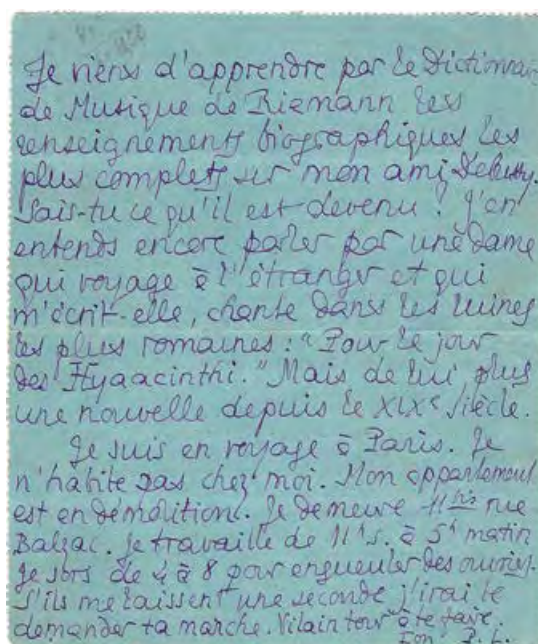 Je viens d'apprendre par le Dictionnaire
de Musique de Riemann les
renseignements biographiques les
plus complets sur mon ami Debussy.
Sais-tu ce qu'il est devenu ? J'en
entends encore parler par une dame
qui voyage à l'étranger et qui
m'écrit-elle, chante dans les ruines
les plus romaines : "Pour le jour
des Hyaacinthi." Mais de lui, plus
une nouvelle depuis le XIXe siècle.
Je suis en voyage à Paris. Je
n'habite pas chez moi. Mon appartement
est en démolition. Je demeure 11bis rue
Balzac. Je travaille de 11h s. à 5h matin
Je sors de 4 à 8 pour engueuler des ouvriers.
S'ils me laissent une seconde j'irai te
demander ta marche. Vilain tour à te faire.
Ton P. L.